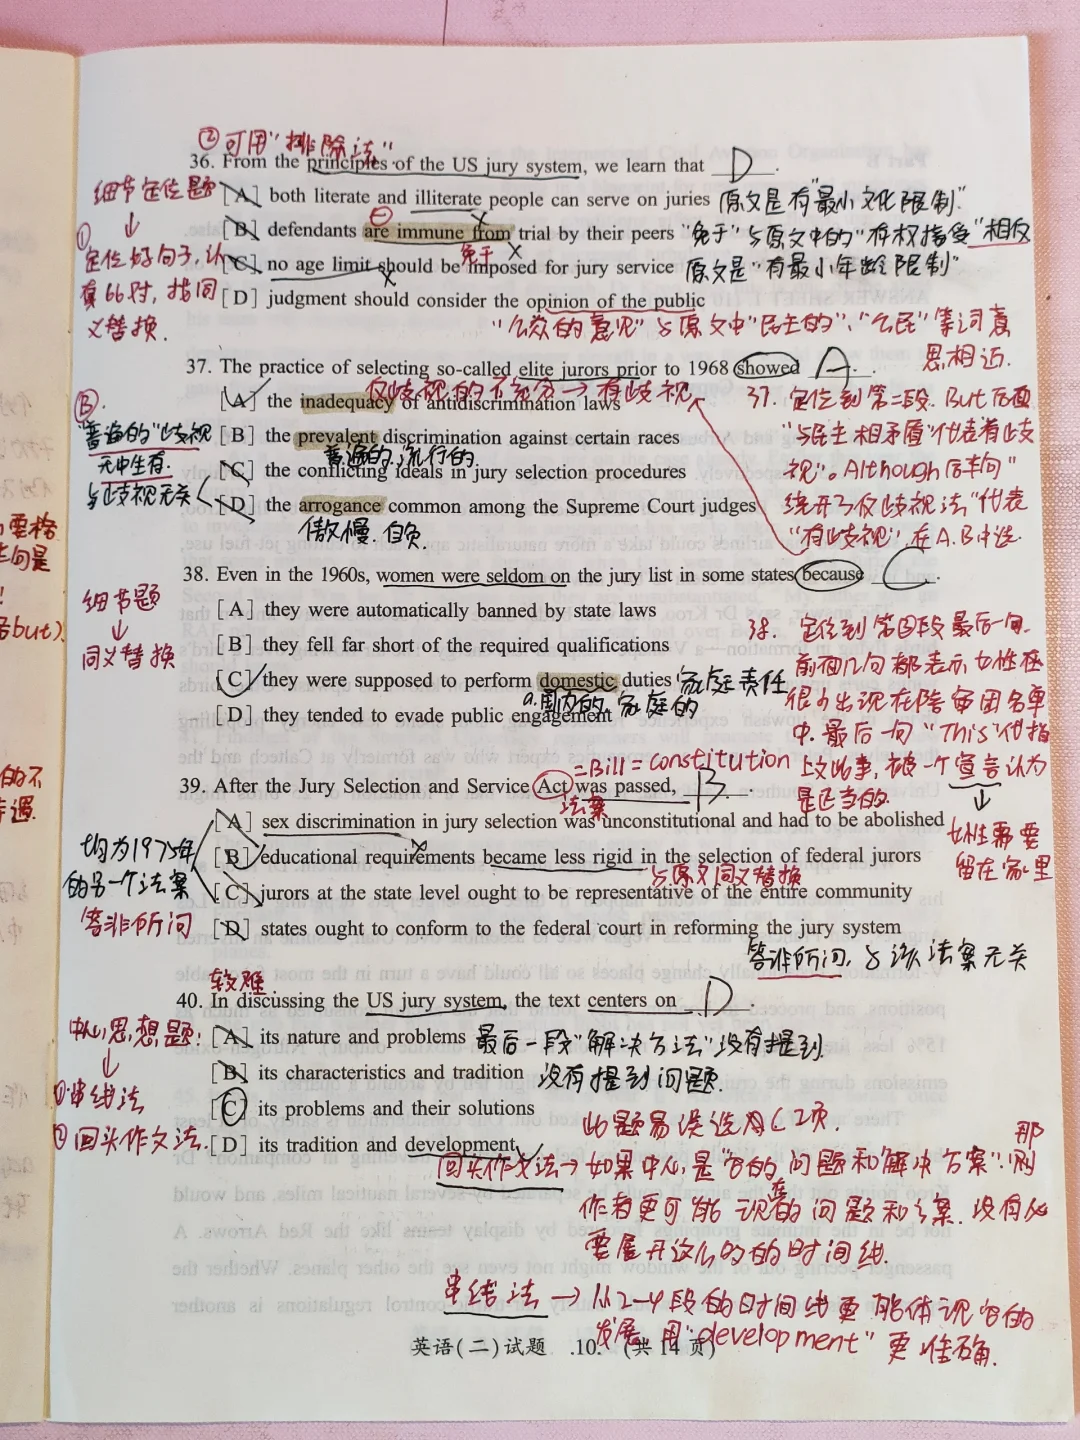 ②可用"排除法"
36. From the principles of the US jury system, we learn that D.
细节定位题
↓
①
定位好句子,认
真比对,找同
义替换.
[A] both literate and illiterate people can serve on juries 原文是有"最小文化限制".
[B] defendants are immune from trial by their peers "免于"与原文中的"有权接受"相反
免于
[C] no age limit should be imposed for jury service 原文是"有最小年龄限制"
[D] judgment should consider the opinion of the public
"公众的意见"与原文中"民主的"、"公民"等词意
思相近.
37. The practice of selecting so-called elite jurors prior to 1968 showed A.
反歧视的不充分→有歧视
[A] the inadequacy of antidiscrimination laws
[B] the prevalent discrimination against certain races
普遍的,流行的
[C] the conflicting ideals in jury selection procedures
[D] the arrogance common among the Supreme Court judges
傲慢.自负.
B.
"普遍的"歧视
无中生有.
与歧视无关
37. 定位到第二段. But后面
"与民主相矛盾"代表"有歧
视"。Although后半句"
绕开了反歧视法"代表
"有歧视",在A.B中选.
38. Even in the 1960s, women were seldom on the jury list in some states because C.
细节题
↓
同义替换
[A] they were automatically banned by state laws
[B] they fell far short of the required qualifications
[C] they were supposed to perform domestic duties 家庭责任
a.国内的,家庭的
[D] they tended to evade public engagement
38. 定位到第四段最后一句.
前面几句都表示女性在
很少出现在陪审团名单
中.最后一句"This"代指
上文此事,被一个宣告认为
是正当的.
↓
女性需要
留在家里
=Bill=constitution
39. After the Jury Selection and Service Act was passed, B.
法案
[A] sex discrimination in jury selection was unconstitutional and had to be abolished
[B] educational requirements became less rigid in the selection of federal jurors
与原文同义替换
[C] jurors at the state level ought to be representative of the entire community
[D] states ought to conform to the federal court in reforming the jury system
答非所问,与该法案无关
均为1975年
的另一个法案
答非所问
较难.
40. In discussing the US jury system, the text centers on D.
中心思想题:
↓
①串线法
②回头作文法.
[A] its nature and problems 最后一段"解决方法"没有提到.
[B] its characteristics and tradition 没有提到问题.
[C] its problems and their solutions
[D] its tradition and development
此题易误选为C项.
回头作文法→如果中心是"它的问题和解决方案".那么
作者更可能说它的问题和方案.没有必
要展开这么多的时间线.
串线法→从2-4段的时间线更能体现它的
发展,用"development"更准确.
英语(二)试题 .10. (共14页)